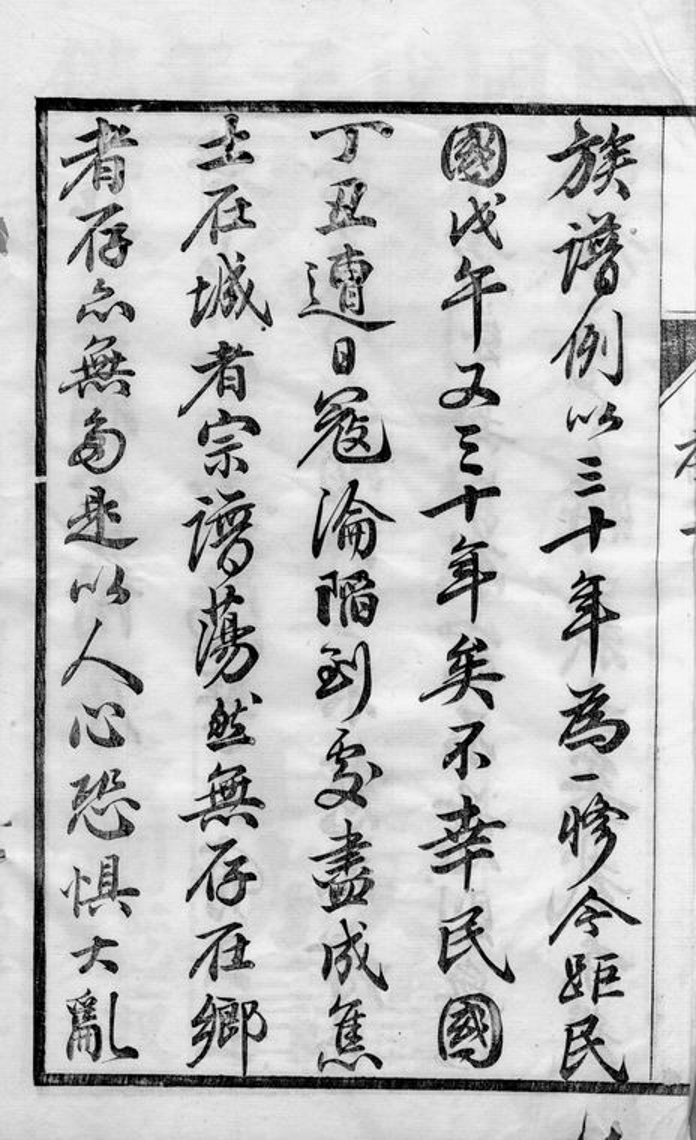 族譜例以三十年為一修今距民
國戊午又三十年矣不幸民國
丁丑遭日寇淪陷到處盡成焦
土在城者宗譜蕩然無存在鄉
者存亦無多是以人心恐惧大亂